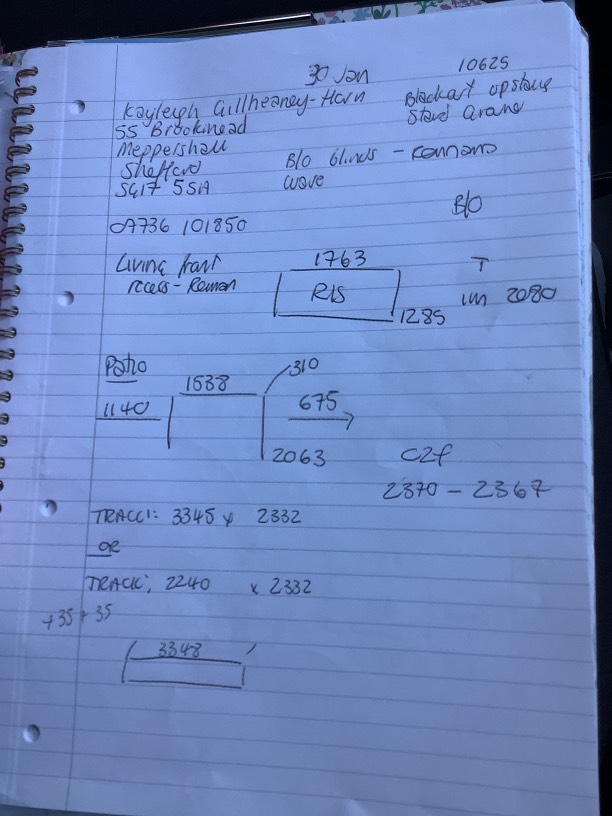 30 Jan 10625
Kayleigh Horn
55
Meppershall
Shefford B/O blinds - Romans
SG17 5SA wave
B/O
07736 101850
Living front 1763 T
recess - Roman R/S 1m 2080
1285
Patio 310
1538
1140 675
2063 C2f
2370 - 2367
TRACK: 3345 x 2332
OR
TRACK: 2240 x 2332
+35+35
3348